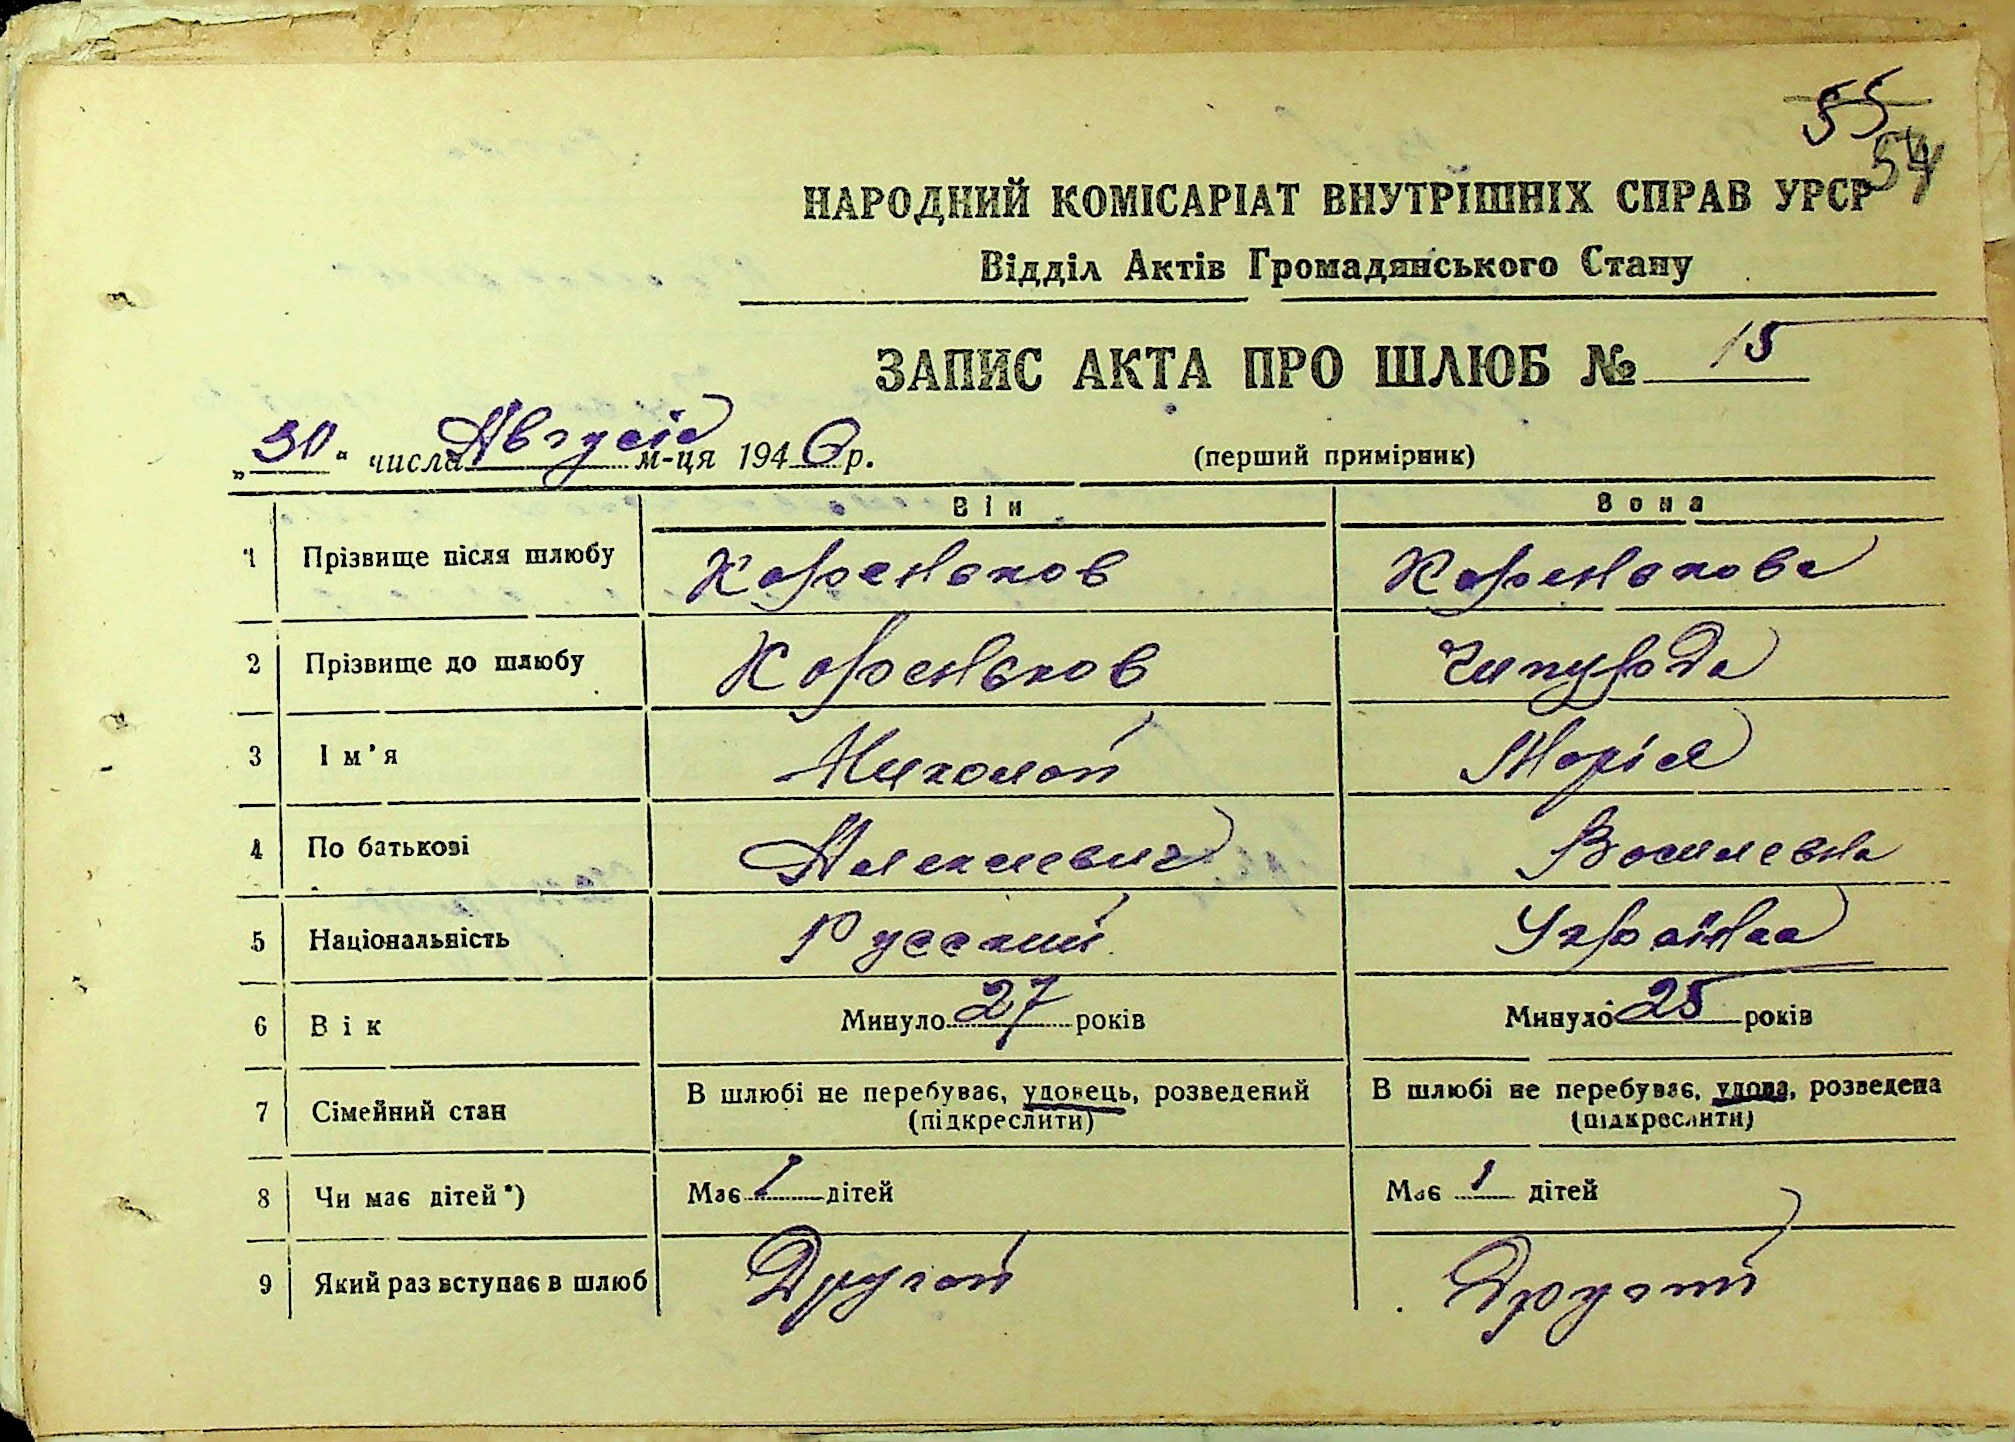 55
54
НАРОДНИЙ КОМІСАРІАТ ВНУТРІШНІХ СПРАВ УРСР
Відділ Актів Громадянського Стану
ЗАПИС АКТА ПРО ШЛЮБ № 15
„30“ числа Август м-ця 1946 р. (перший примірник)
Він Вона
1 Прізвище після шлюбу Кореньков Коренькова
2 Прізвище до шлюбу Кореньков
3 Ім'я Николай Марія
4 По батькові Алексеевич Василевна
5 Національність Русский Українка
6 Вік Минуло 27 років Минуло 25 років
7 Сімейний стан В шлюбі не перебуває, удовець, розведений В шлюбі не перебуває, удова, розведена
(підкреслити) (підкреслити)
8 Чи має дітей*) Має 1 дітей Має 1 дітей
9 Який раз вступає в шлюб Другой Другий